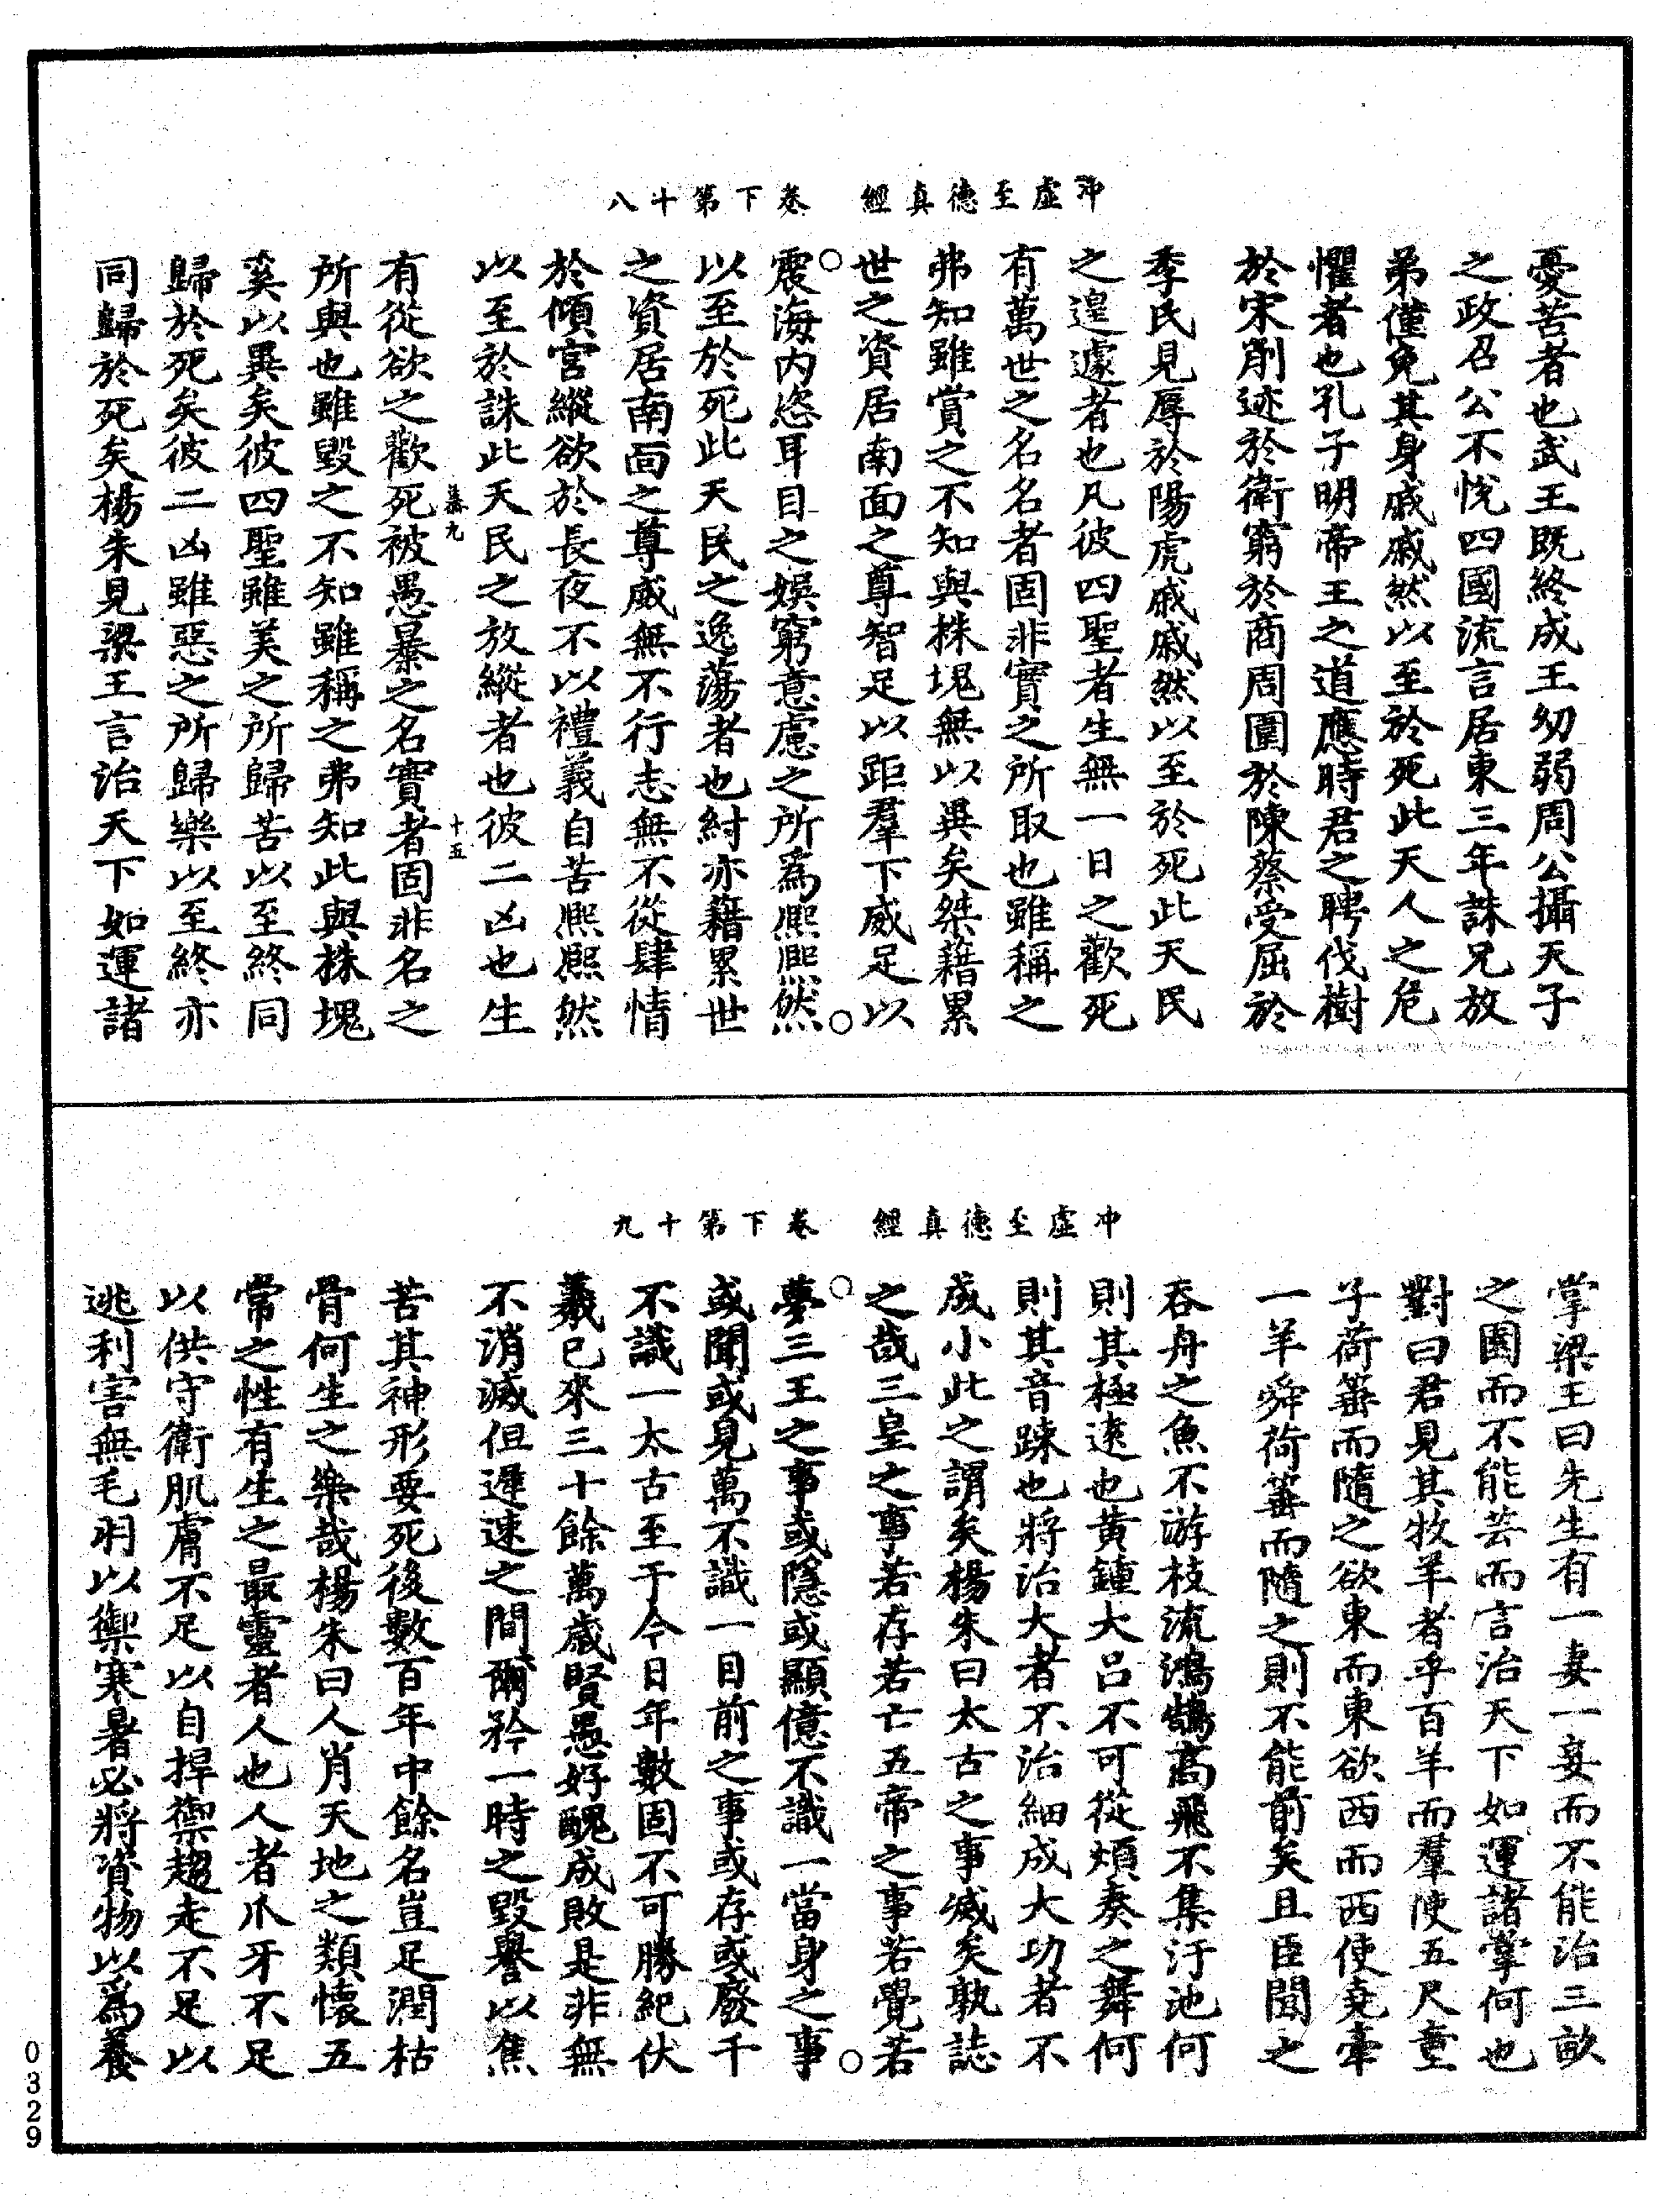 冲虛至德真經　卷下第十八
憂苦者也武王既終成王幼弱周公攝天子
之政召公不悅四國流言居東三年誅兄放
弟僅免其身戚戚然以至於死此天人之危
懼者也孔子明帝王之道應時君之聘伐樹
於宋削迹於衛窮於商周圍於陳蔡受屈於
季氏見辱於陽虎戚戚然以至於死此天民
之遑遽者也凡彼四聖者生無一日之歡死
有萬世之名名者固非實之所取也雖稱之
弗知雖賞之不知與株塊無以異矣桀藉累
世之資居南面之尊智足以距羣下威足以
○震海内恣耳目之娛窮意慮之所爲熙熙然○
以至於死此天民之逸蕩者也紂亦藉累世
之資居南面之尊威無不行志無不從肆情
於傾宮縱欲於長夜不以禮義自苦熙熙然
以至於誅此天民之放縱者也彼二凶也生
慕九　十五
有從欲之歡死被愚暴之名實者固非名之
所與也雖毀之不知雖稱之弗知此與株塊
奚以異矣彼四聖雖美之所歸苦以至終同
歸於死矣彼二凶雖惡之所歸樂以至終亦
同歸於死矣楊朱見梁王言治天下如運諸
冲虛至德真經　卷下第十九
掌梁王曰先生有一妻一妾而不能治三畝
之園而不能芸而言治天下如運諸掌何也
對曰君見其牧羊者乎百羊而羣使五尺童
子荷箠而隨之欲東而東欲西而西使堯牽
一羊舜荷箠而隨之則不能前矣且臣聞之
吞舟之魚不游枝流鴻鵠高飛不集汙池何
則其極遠也黃鍾大呂不可從煩奏之舞何
則其音踈也將治大者不治細成大功者不
成小此之謂矣楊朱曰太古之事滅矣孰誌
之哉三皇之事若存若亡五帝之事若覺若
○夢三王之事或隱或顯億不識一當身之事○
或聞或見萬不識一目前之事或存或廢千
不識一太古至于今日年數固不可勝紀伏
羲已來三十餘萬歲賢愚好醜成敗是非無
不消滅但遲速之間爾矜一時之毀譽以焦
苦其神形要死後數百年中餘名豈足潤枯
骨何生之樂哉楊朱曰人肖天地之類懷五
常之性有生之最靈者人也人者爪牙不足
以供守衛肌膚不足以自捍禦趨走不足以
逃利害無毛羽以禦寒暑必將資物以爲養
0329